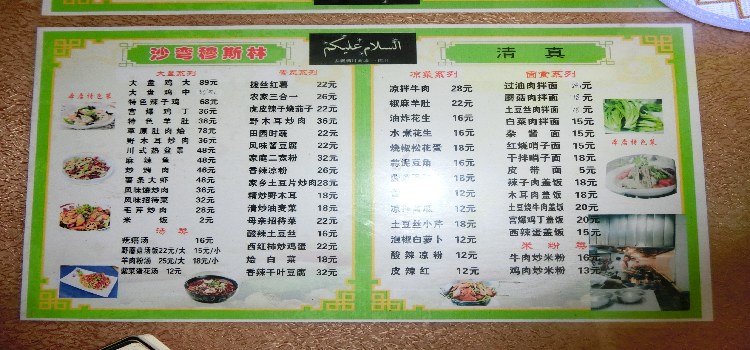 沙弯穆斯林
السلام عليكم
清真
大盘系列
大盘鸡大 89元
大盘鸡中
特色辣子鸡 68元
宫爆鸡丁 36元
特色羊肚 38元
草原肚肉烩 78元
野木耳炒肉 36元
川式熟食盆 48元
麻辣鱼 48元
炒烤肉 46元
酱条大虾 48元
风味馋炒肉 36元
风味招待菜 32元
毛芹炒肉 28元
米饭 2元
汤类
紫焰汤 16元
野蘑菇汤饭22元/大 15元/小
羊肉粉汤 25元/大 18元/小
紫菜蛋花汤 12元
本店特色菜
素菜系列
拔丝红薯 22元
农家三合一 26元
虎皮辣子烧茄子 22元
野木耳炒肉 36元
田园时蔬 22元
风味酱豆腐 22元
家庭二宽粉 32元
香辣凉粉 26元
家乡土豆片炒肉 28元
精炒野木耳 18元
清炒油麦菜 18元
母亲招待菜 22元
酸辣土豆丝 16元
西红柿炒鸡蛋 22元
烩白菜 18元
香辣千叶豆腐 32元
凉菜系列
凉拌牛肉 28元
椒麻羊肚 22元
油炸花生 16元
水煮花生 16元
烧椒松花蛋 18元
蒜泥豆角 16元
18元
12元
18元
土豆丝小芹 18元
泡椒白萝卜 12元
酸辣凉粉 12元
皮辣红 12元
面食系列
过油肉拌面
蘑菇肉拌面
土豆丝肉拌面
白菜肉拌面 15元
杂酱面 15元
红烧哨子面 15元
干拌哨子面 15元
皮带面 5元
辣子肉盖饭 18元
木耳肉盖饭 18元
土豆烧牛肉盖饭 20元
宫爆鸡丁盖饭 20元
西辣蛋盖饭 15元
米粉类
牛肉炒米粉 16元
鸡肉炒米粉 13元
本店特色菜